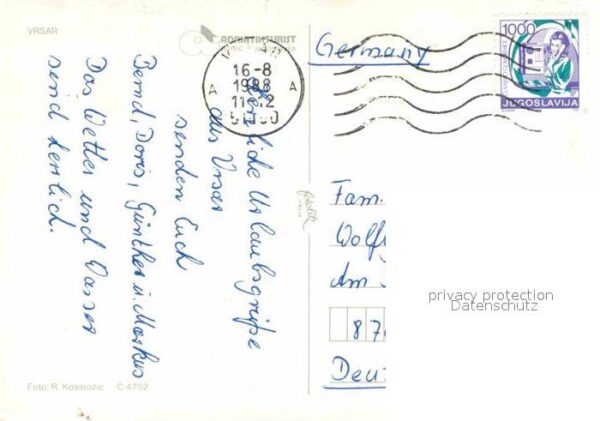 VRSAR
ADRIATIKTURIST
Herzliche Urlaubsgrüße
aus Vrsar
senden Euch
Bernd, Doris, Günther u. Markus
Das Wetter und Wasser
sind herrlich.
Foto: R. Kosinožic C 4752
16-8
1988
A A
Germany
1000
JUGOSLAVIJA
Fam.
Wolf
Am
87
Deu
privacy protection
Datenschutz